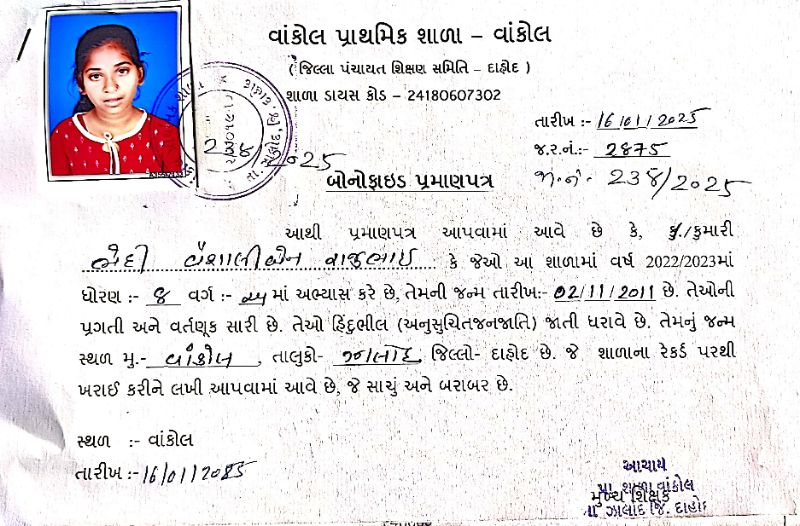 વાંકોલ પ્રાથમિક શાળા – વાંકોલ
( જિલ્લા પંચાયત શિક્ષણ સમિતિ – દાહોદ )
શાળા ડાયસ કોડ – 24180607302
તારીખ :- 16/01/2025
જ.ર.નં.:- 2875
જા.નં- 238/2025
238/2025
બોનોફાઇડ પ્રમાણપત્ર
આથી પ્રમાણપત્ર આપવામાં આવે છે કે, કુ./કુમારી
વૈશાલીબેન વાજુભાઇ કે જેઓ આ શાળામાં વર્ષ 2022/2023માં
ધોરણ :- 8 વર્ગ :- માં અભ્યાસ કરે છે, તેમની જન્મ તારીખ:- 02/11/2011 છે. તેઓની
પ્રગતી અને વર્તણૂક સારી છે. તેઓ હિંદુભીલ (અનુસુચિતજનજાતિ) જાતી ધરાવે છે. તેમનું જન્મ
સ્થળ મુ.- વાંકોલ , તાલુકો- ઝાલોદ જિલ્લો- દાહોદ છે. જે શાળાના રેકર્ડ પરથી
ખરાઈ કરીને લખી આપવામાં આવે છે, જે સાચું અને બરાબર છે.
સ્થળ :- વાંકોલ
તારીખ :- 16/01/2025
આચાર્ય
પ્રા. શાળા વાંકોલ
મુખ્ય શિક્ષક
તા ઝાલોદ જિ. દાહોદ